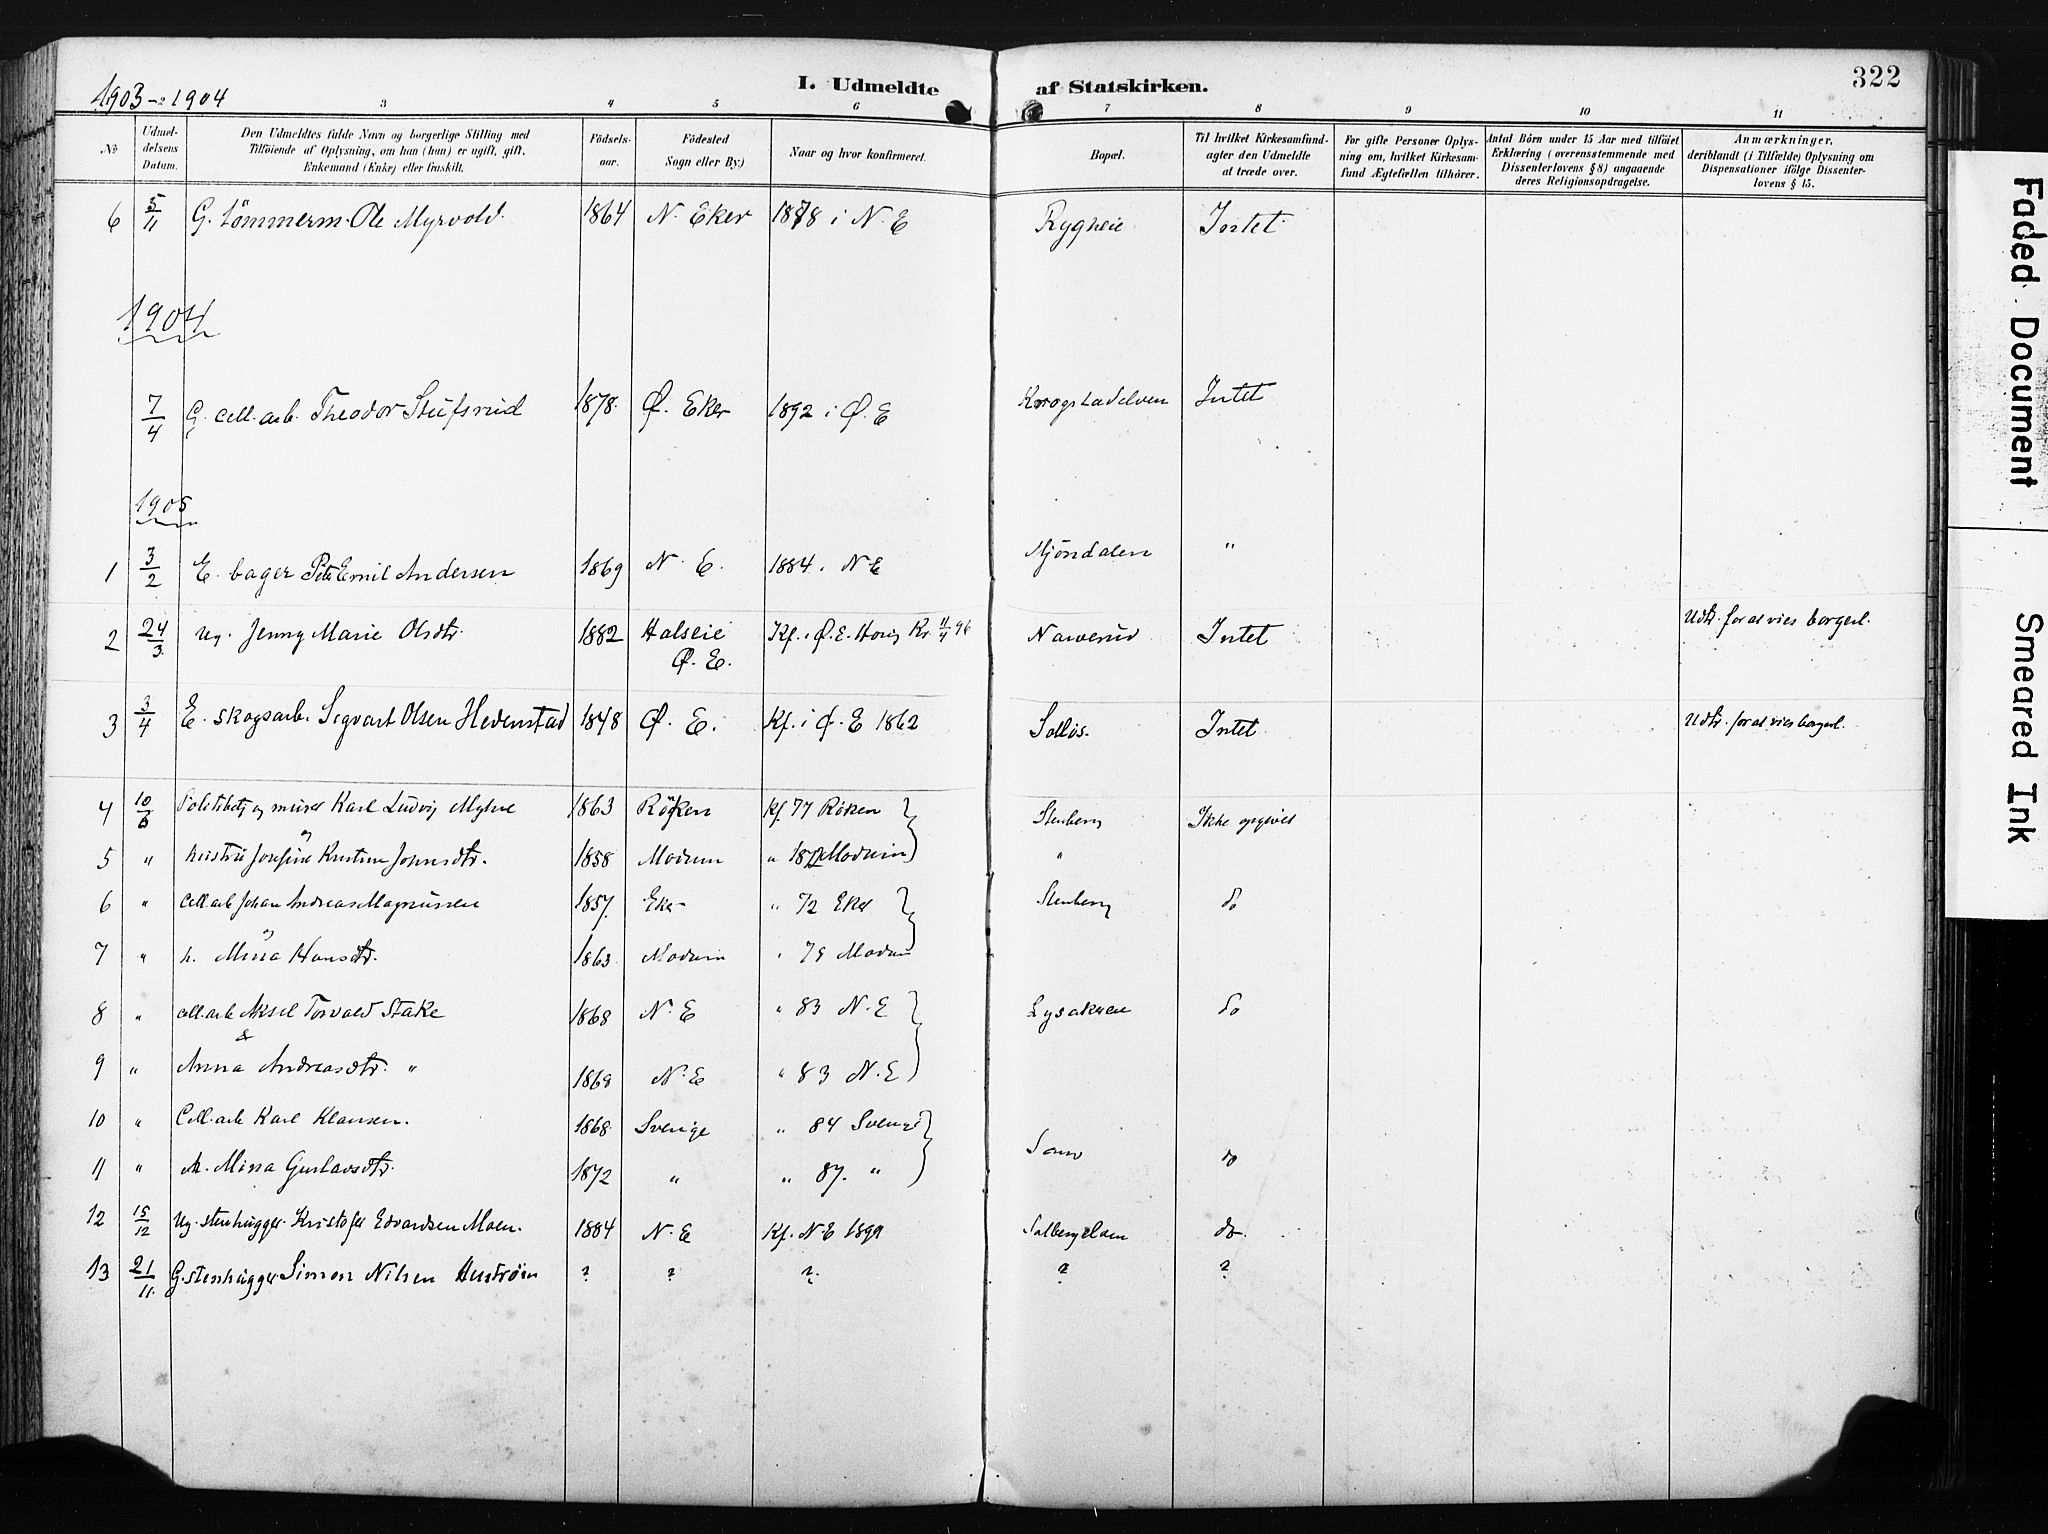 1903-1904
I. Udmeldte af Statskirken.
322
3 4 5 6 7 8 9 10 11
No
Udmeldelsens Datum.
Den Udmeldtes fulde Navn og borgerlige Stilling med
Tilföiende af Oplysning, om han (hun) er ugift, gift,
Enkemand (Enke) eller fraskilt.
Födselsaar.
Födested
Sogn eller By.)
Naar og hvor konfirmeret.
Bopæl.
Til hvilket Kirkesamfund
agter den Udmeldte
at træde over.
For gifte Personer Oplysning om, hvilket Kirkesamfund Ægtefællen tilhörer.
Antal Börn under 15 Aar med tilföiet
Erklæring (overensstemmende med
Dissenterlovens § 8) angaaende
deres Religionsopdragelse.
Anmærkninger,
deriblandt (i Tilfælde) Oplysning om
Dispensationer ifölge Dissenterlovens § 15.
6 5/11 G. tömmerm. Ole Myrvold. 1864 N. Eker 1878 i N. E Rygheie Intet
1904
7/4 G. cell. arb. Theodor Stufsrud 1878. Ø. Eker 1892 i Ø. E Krogstadelven Intet
1905
1 3/2 E. bager Petr Emil Andersen 1869 N. E. 1884 i N E Mjöndalen "
2 24/3 ug. Jenny Marie Olsdtr. 1882 Halseie Ø. E. Kf. i Ø. E. Intet Udtr. for at vies borgerl.
3 3/4 E. skogsarb. Segvart Olsen Hedenstad 1848 Ø. E. Kf. i Ø. E 1862 Solløs. Intet Udtr. for at vies borgerl.
4 10/6 Karl Ludvig Myhre 1863 Röken Kf. 77 Röken Stenberg Ikke opgivet
5 " hustru Josefine Kristine Johnsdtr. 1858 Modum " 1872 Modum "
6 " cell. arb Johan Andreas Magnussen 1857 Eker " 72 Eker Stenberg do
og
7 " h. Mina Hansdtr. 1863 Modum " 79 Modum
8 " cell. arb Aksel Torvald Stake 1868 N. E " 83 N. E Lysakeren do
&
9 " Anna Andreasdtr. " 1869 N. E " 83 N. E
10 " Cell. arb Karl Klausen. 1868 Sverige " 84 Sverige
11 " h. Mina Gustavsdtr. 1872 " " 87. " do
12 15/12 Ug. stenhugger Kristofer Edvardsen Moen. 1884 N. E Kf. N. E 1899 Solbergelven do
13 21/11 G. stenhugger Simon Nilsen ? ? ? ? ?
Faded Document
Smeared Ink